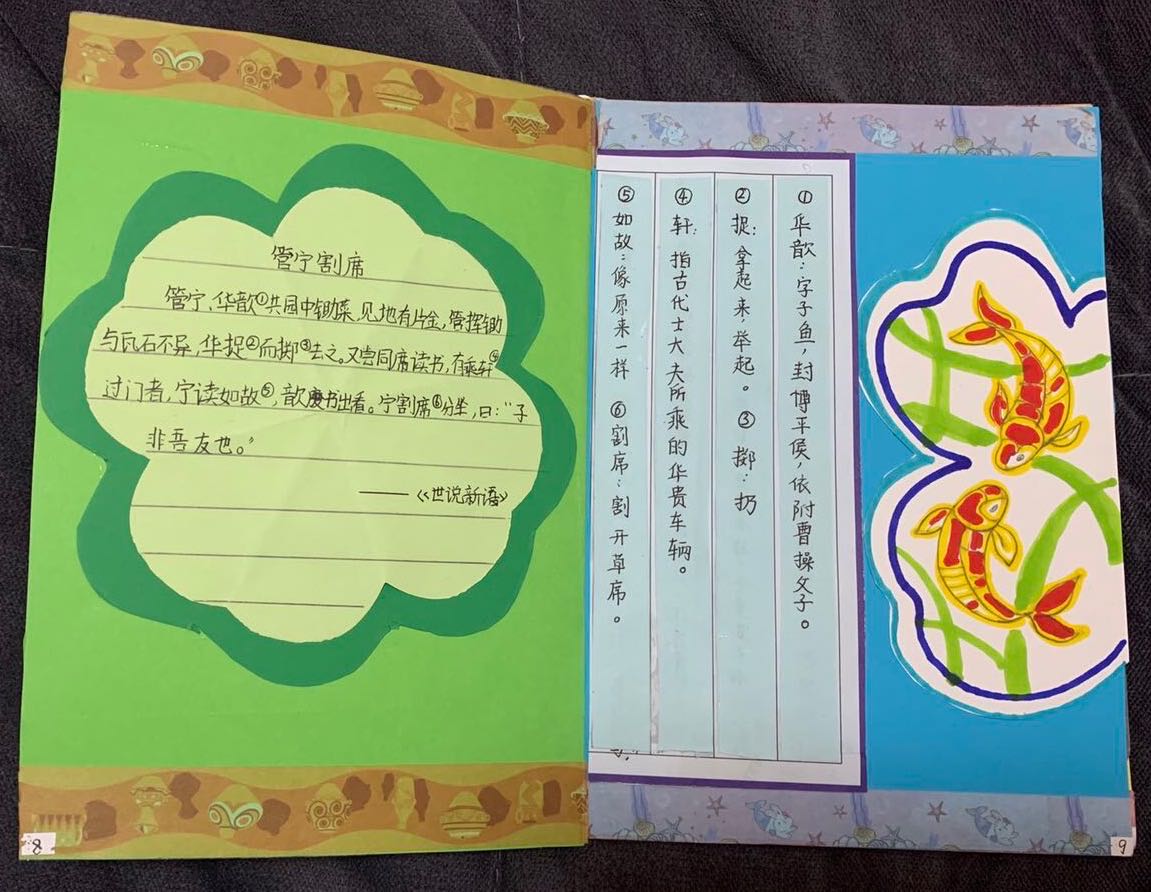 管宁割席
管宁、华歆①共园中锄菜,见地有片金,管挥锄
与瓦石不异,华捉②而掷③去之。又尝同席读书,有乘轩④
过门者,宁读如故⑤,歆废书出看。宁割席⑥分坐,曰:“子
非吾友也。”
——《世说新语》
8
①华歆:字子鱼,封博平侯,依附曹操父子。
②捉:拿起来,举起。 ③掷:扔
④轩:指古代士大夫所乘的华贵车辆。
⑤如故:像原来一样 ⑥割席:割开草席。
9